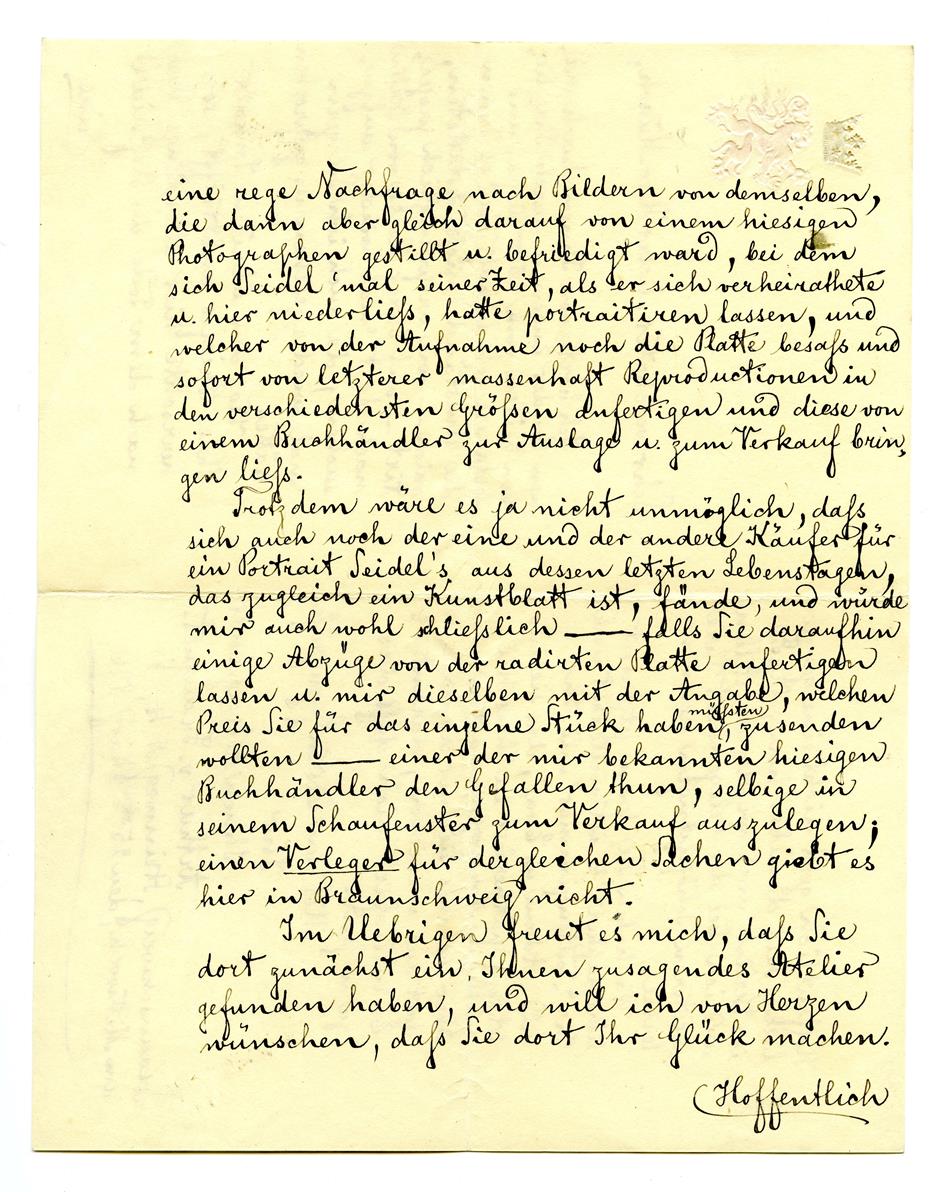 eine rege Nachfrage nach Bildern von demselben,
die dann aber gleich darauf von einem hiesigen
Photographen gestillt u. befriedigt ward, bei dem
sich Seidel 'mal seiner Zeit, als er sich verheirathete
u. hier niederließ, hatte portraitiren lassen, und
welcher von der Aufnahme noch die Platte besaß und
sofort von letzterer massenhaft Reproductionen in
den verschiedensten Größen anfertigen und diese von
einem Buchhändler zur Auslage u. zum Verkauf brin-
gen ließ.
Trotzdem wäre es ja nicht unmöglich, daß
sich auch noch der eine und der andere Käufer für
ein Portrait Seidel's aus dessen letzten Lebenstagen,
das zugleich ein Kunstblatt ist, fände, und würde
mir auch wohl schließlich — falls Sie daraufhin
einige Abzüge von der radirten Platte anfertigen
lassen u. mir dieselben mit der Angabe, welchen
Preis Sie für das einzelne Stück haben müßten, zusenden
wollten — einer der mir bekannten hiesigen
Buchhändler den Gefallen thun, selbige in
seinem Schaufenster zum Verkauf auszulegen;
einen Verleger für dergleichen Sachen giebt es
hier in Braunschweig nicht.
Im Uebrigen freut es mich, daß Sie
dort zunächst ein, Ihnen zusagendes Atelier
gefunden haben, und will ich von Herzen
wünschen, daß Sie dort Ihr Glück machen.
Hoffentlich